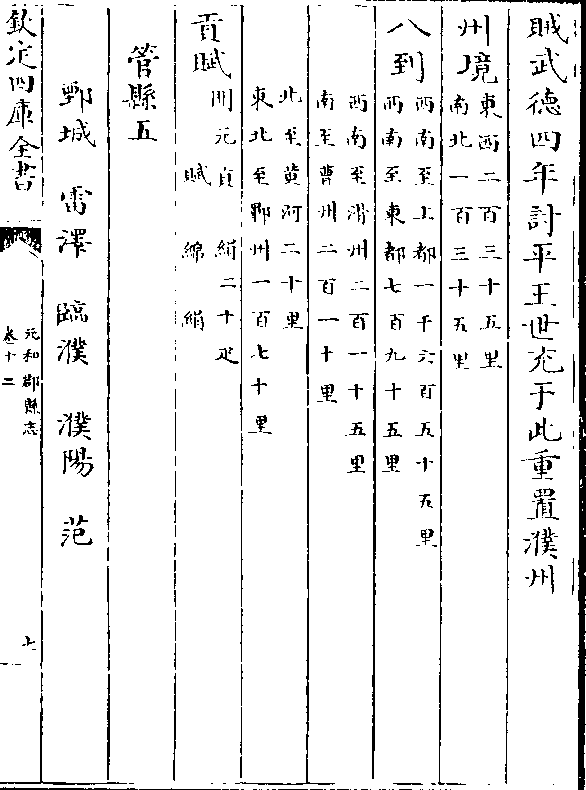 賊武德四年討平王世充于此重置濮州
州境東西二百三十五里
南北一百三十五里
八到西南至上都一千六百五十五里
西南至東都七百九十五里
西南至滑州二百一十五里
南至曹州二百一十里
北至黄河二十里
東北至鄆州一百七十里
貢賦開元貢 絹二十疋
賦 綿 絹
管縣五
鄄城 雷澤 臨濮 濮陽 范
欽定四庫全書
元和郡縣志
卷十二
七